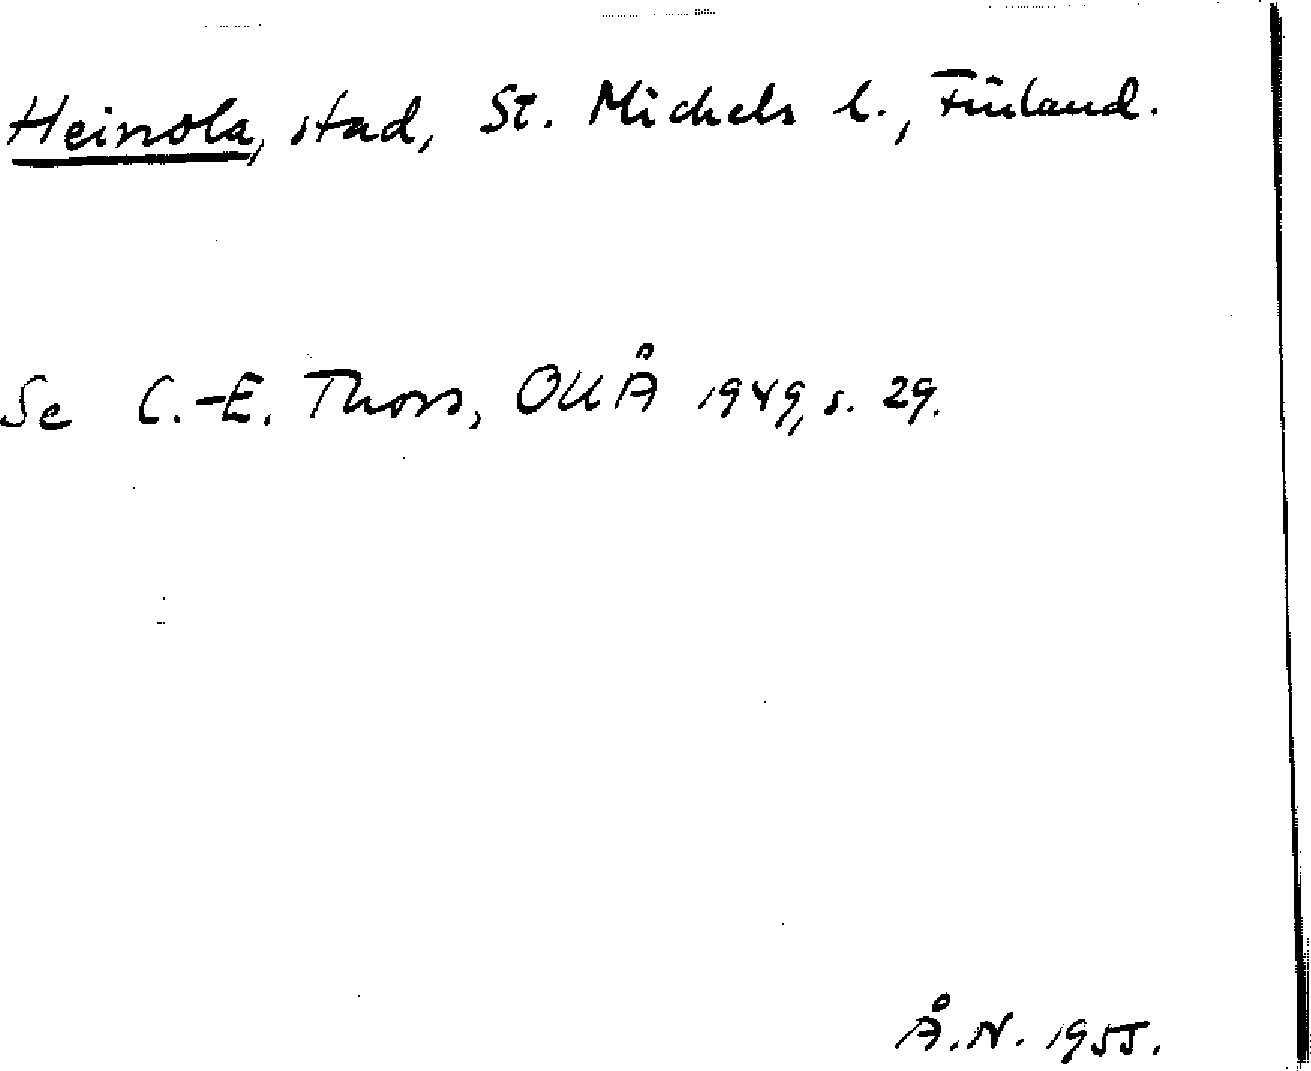 Heinola, stad, St. Michels l., Finland.
Se C.-E. Thors, OUÅ 1949, s. 29.
Å.N. 1955.